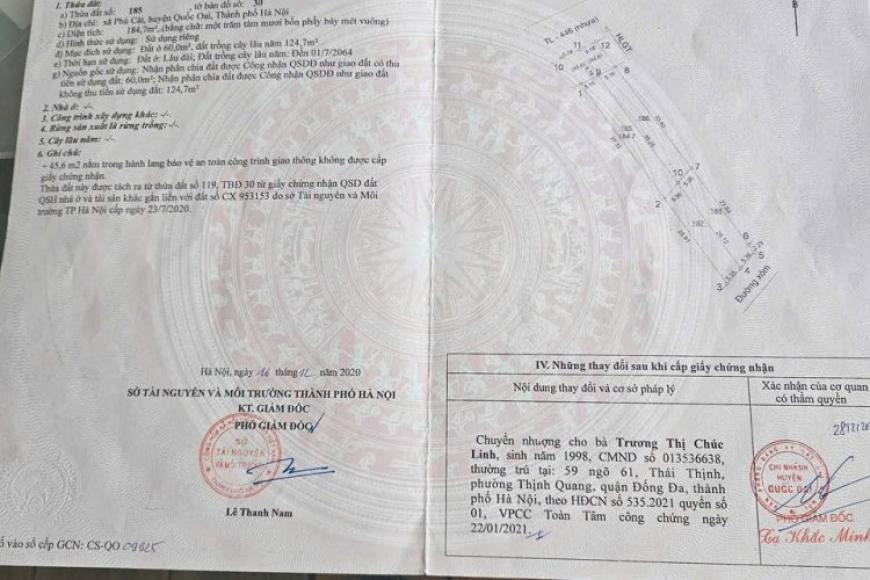 1. Thửa đất:
a) Thửa đất số: 185 , tờ bản đồ số: 30
b) Địa chỉ: xã Phú Cát, huyện Quốc Oai, Thành phố Hà Nội
c) Diện tích: 184,7m², (bằng chữ: một trăm tám mươi bốn phẩy bảy mét vuông)
d) Hình thức sử dụng: Sử dụng riêng
đ) Mục đích sử dụng: Đất ở 60,0m², đất trồng cây lâu năm 124,7m²
e) Thời hạn sử dụng: Đất ở: Lâu dài; Đất trồng cây lâu năm: Đến 01/7/2064
g) Nguồn gốc sử dụng: Nhận phân chia đất được Công nhận QSDĐ như giao đất có thu
tiền sử dụng đất: 60,0m²; Nhận phân chia đất được Công nhận QSDĐ như giao đất
không thu tiền sử dụng đất: 124,7m²
2. Nhà ở: -/-
3. Công trình xây dựng khác: -/-
4. Rừng sản xuất là rừng trồng: -/-
5. Cây lâu năm: -/-
6. Ghi chú:
+ 45,6 m2 nằm trong hành lang bảo vệ an toàn công trình giao thông không được cấp
giấy chứng nhận.
Thửa đất này được tách ra từ thửa đất số 119, TBĐ 30 từ giấy chứng nhận QSD đất
QSH nhà ở và tài sản khác gắn liền với đất số CX 953153 do sở Tài nguyên và Môi
trường TP Hà Nội cấp ngày 23/7/2020.
Hà Nội, ngày 16 tháng 12 năm 2020
SỞ TÀI NGUYÊN VÀ MÔI TRƯỜNG THÀNH PHỐ HÀ NỘI
KT. GIÁM ĐỐC
PHÓ GIÁM ĐỐC
SỞ
TÀI NGUYÊN
VÀ MÔI TRƯỜNG
Lê Thanh Nam
Số vào sổ cấp GCN: CS-QO 09925
B
TL - 446 (nhựa)
HLGT
11
12
10
9
8
1
186
185
184.7
10
7
2
186
192
6
5
4
3
Đường xóm
IV. Những thay đổi sau khi cấp giấy chứng nhận
Nội dung thay đổi và cơ sở pháp lý
Xác nhận của cơ quan
có thẩm quyền
Chuyển nhượng cho bà Trương Thị Chúc
Linh, sinh năm 1998, CMND số 013536638,
thường trú tại: 59 ngõ 61, Thái Thịnh,
phường Thịnh Quang, quận Đống Đa, thành
phố Hà Nội, theo HĐCN số 535.2021 quyển số
01, VPCC Toàn Tâm công chứng ngày
22/01/2021.
CHI NHÁNH
HUYỆN
QUỐC OAI
PHÓ GIÁM ĐỐC
Tạ Khắc Minh